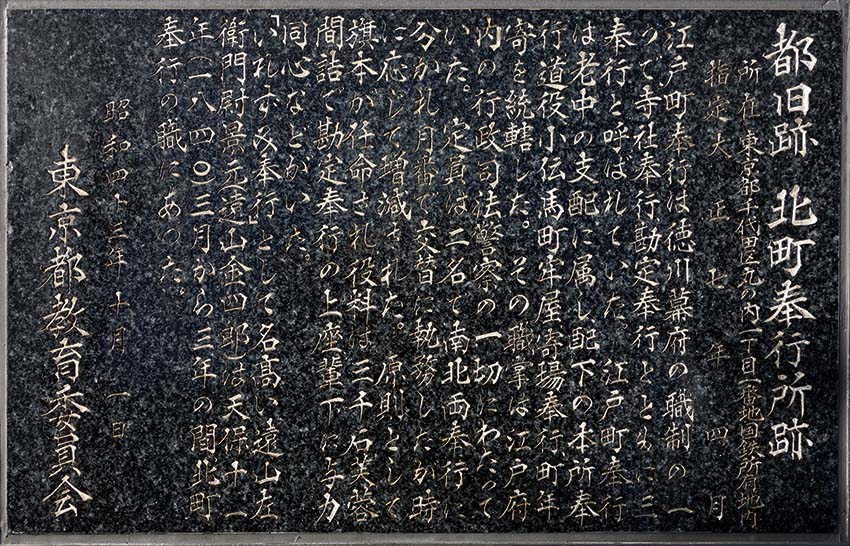 都旧跡 北町奉行所跡
所在 東京都千代田区丸の内一丁目一番地国鉄所有地内
指定 大正七年四月
江戸町奉行は徳川幕府の職制の一
つで寺社奉行勘定奉行とともに三
奉行と呼ばれていた。江戸町奉行
は老中の支配に属し配下の本所奉
行道役小伝馬町牢屋寄場奉行町年
寄を統轄した。その職掌は江戸府
内の行政司法警察の一切にわたって
いた。定員は二名で南北両奉行に
分かれ月番で交替に執務したが時
に応じて増減された。原則として
旗本が任命され役料は三千石芙蓉
間詰で勘定奉行の上座輩下に与力
同心などがいた。
「いれずみ奉行」として名高い遠山左
衛門尉景元(遠山金四郎)は天保十一
年(一八四〇)三月から三年の間北町
奉行の職にあった。
昭和四十三年十月一日
東京都教育委員会